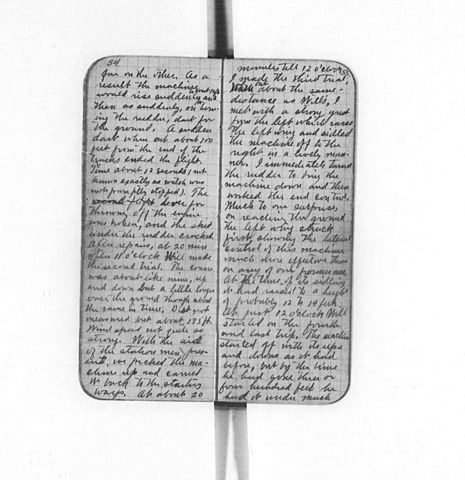 54
far on the other. As a
result the machine
would rise suddenly to about 10 ft. and
then as suddenly, on turn-
ing the rudder, dart for
the ground. A sudden
dart when out about 100
feet from the end of the
tracks ended the flight.
Time about 12 seconds (not
known exactly as watch was
not promptly stopped). The
lever for
throwing off the engine
was broken, and the skid
under the rudder cracked.
After repairs, at 20 min.
after 11 o'clock Will made
the second trial. The course
was about like mine, up
and down but a little longer
over the ground though about
the same in time. Dist. not
measured but about 175 ft.
Wind speed not quite so
strong. With the aid
of the station men pres-
ent, we picked the ma-
chine up and carried
it back to the starting
ways. At about 20
minutes till 12 o'clock
I made the third trial.
When out about the same
distance as Will's, I
met with a strong gust
from the left which raised
the left wing and sidled
the machine off to the
right in a lively man-
ner. I immediately turned
the rudder to bring the
machine down and then
worked the end control.
Much to our surprise,
on reaching the ground
the left wing struck
first, showing the lateral
control of this machine
much more effective than
on any of our former ones.
At the time of its sidling
it had raised to a height
of probably 12 to 14 feet.
At just 12 o'clock Will
started on the fourth
and last trip. The machine
started off with its ups
and downs as it had
before, but by the time
he had gone three or
four hundred feet he
had it under much